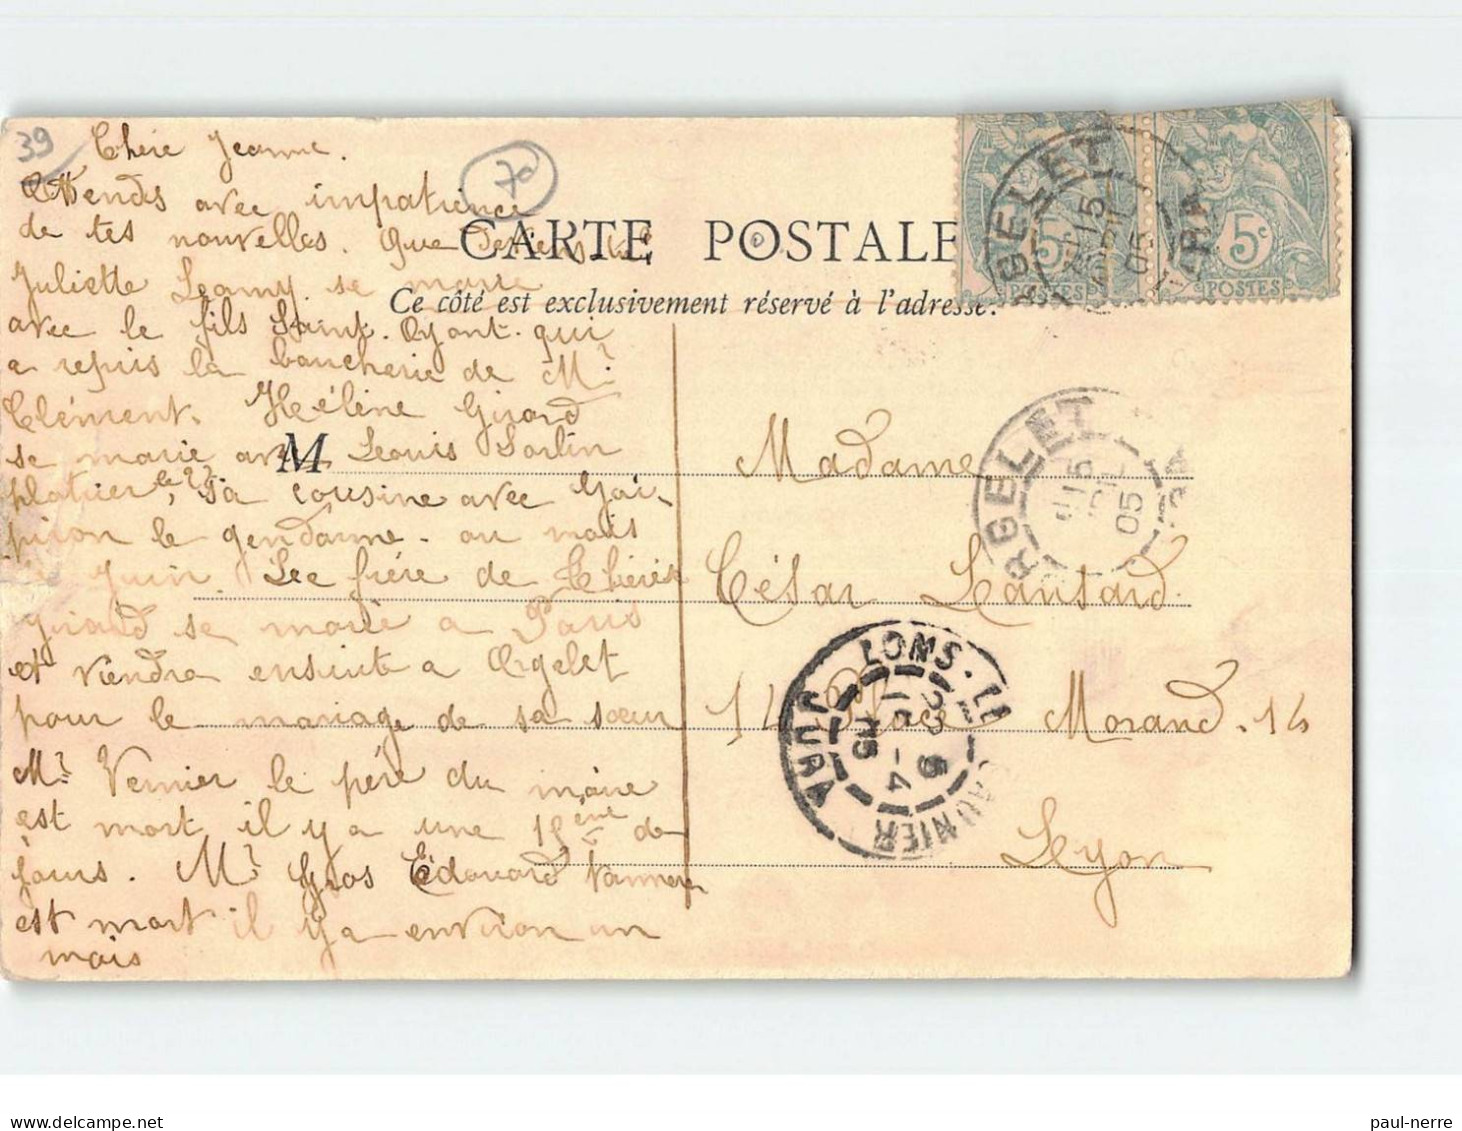 39
70
Chère Jeanne.
Attends avec impatience
de tes nouvelles. Que
Juliette Leamy se marie
avec le fils Saint-Oyant qui
a repris la boucherie de Mr
Clément. Hélène Girard
se marie avec Louis Sorlin
platrier le 27, sa cousine avec Gai-
pison le gendarme au mois
de juin. Lee frère de Thérèse
Girard se marie a Paris
et viendra ensuite a Orgelet
pour le mariage de sa sœur
Mr Vernier le père du maire
est mort il y a une 15ème de
jours. Mr Gros Edouard
est mort il y a environ un
mois
CARTE POSTALE
Ce côté est exclusivement réservé à l'adresse.
M
Madame
César Lansard
14 Place Morand. 14
Lyon
5c 5c
POSTES POSTES
ORGELET
15
AVRIL
05
JURA
ORGELET
15
05
JURA
LONS-LE-SAUNIER
JURA
15 - 4
05
paul-nerre